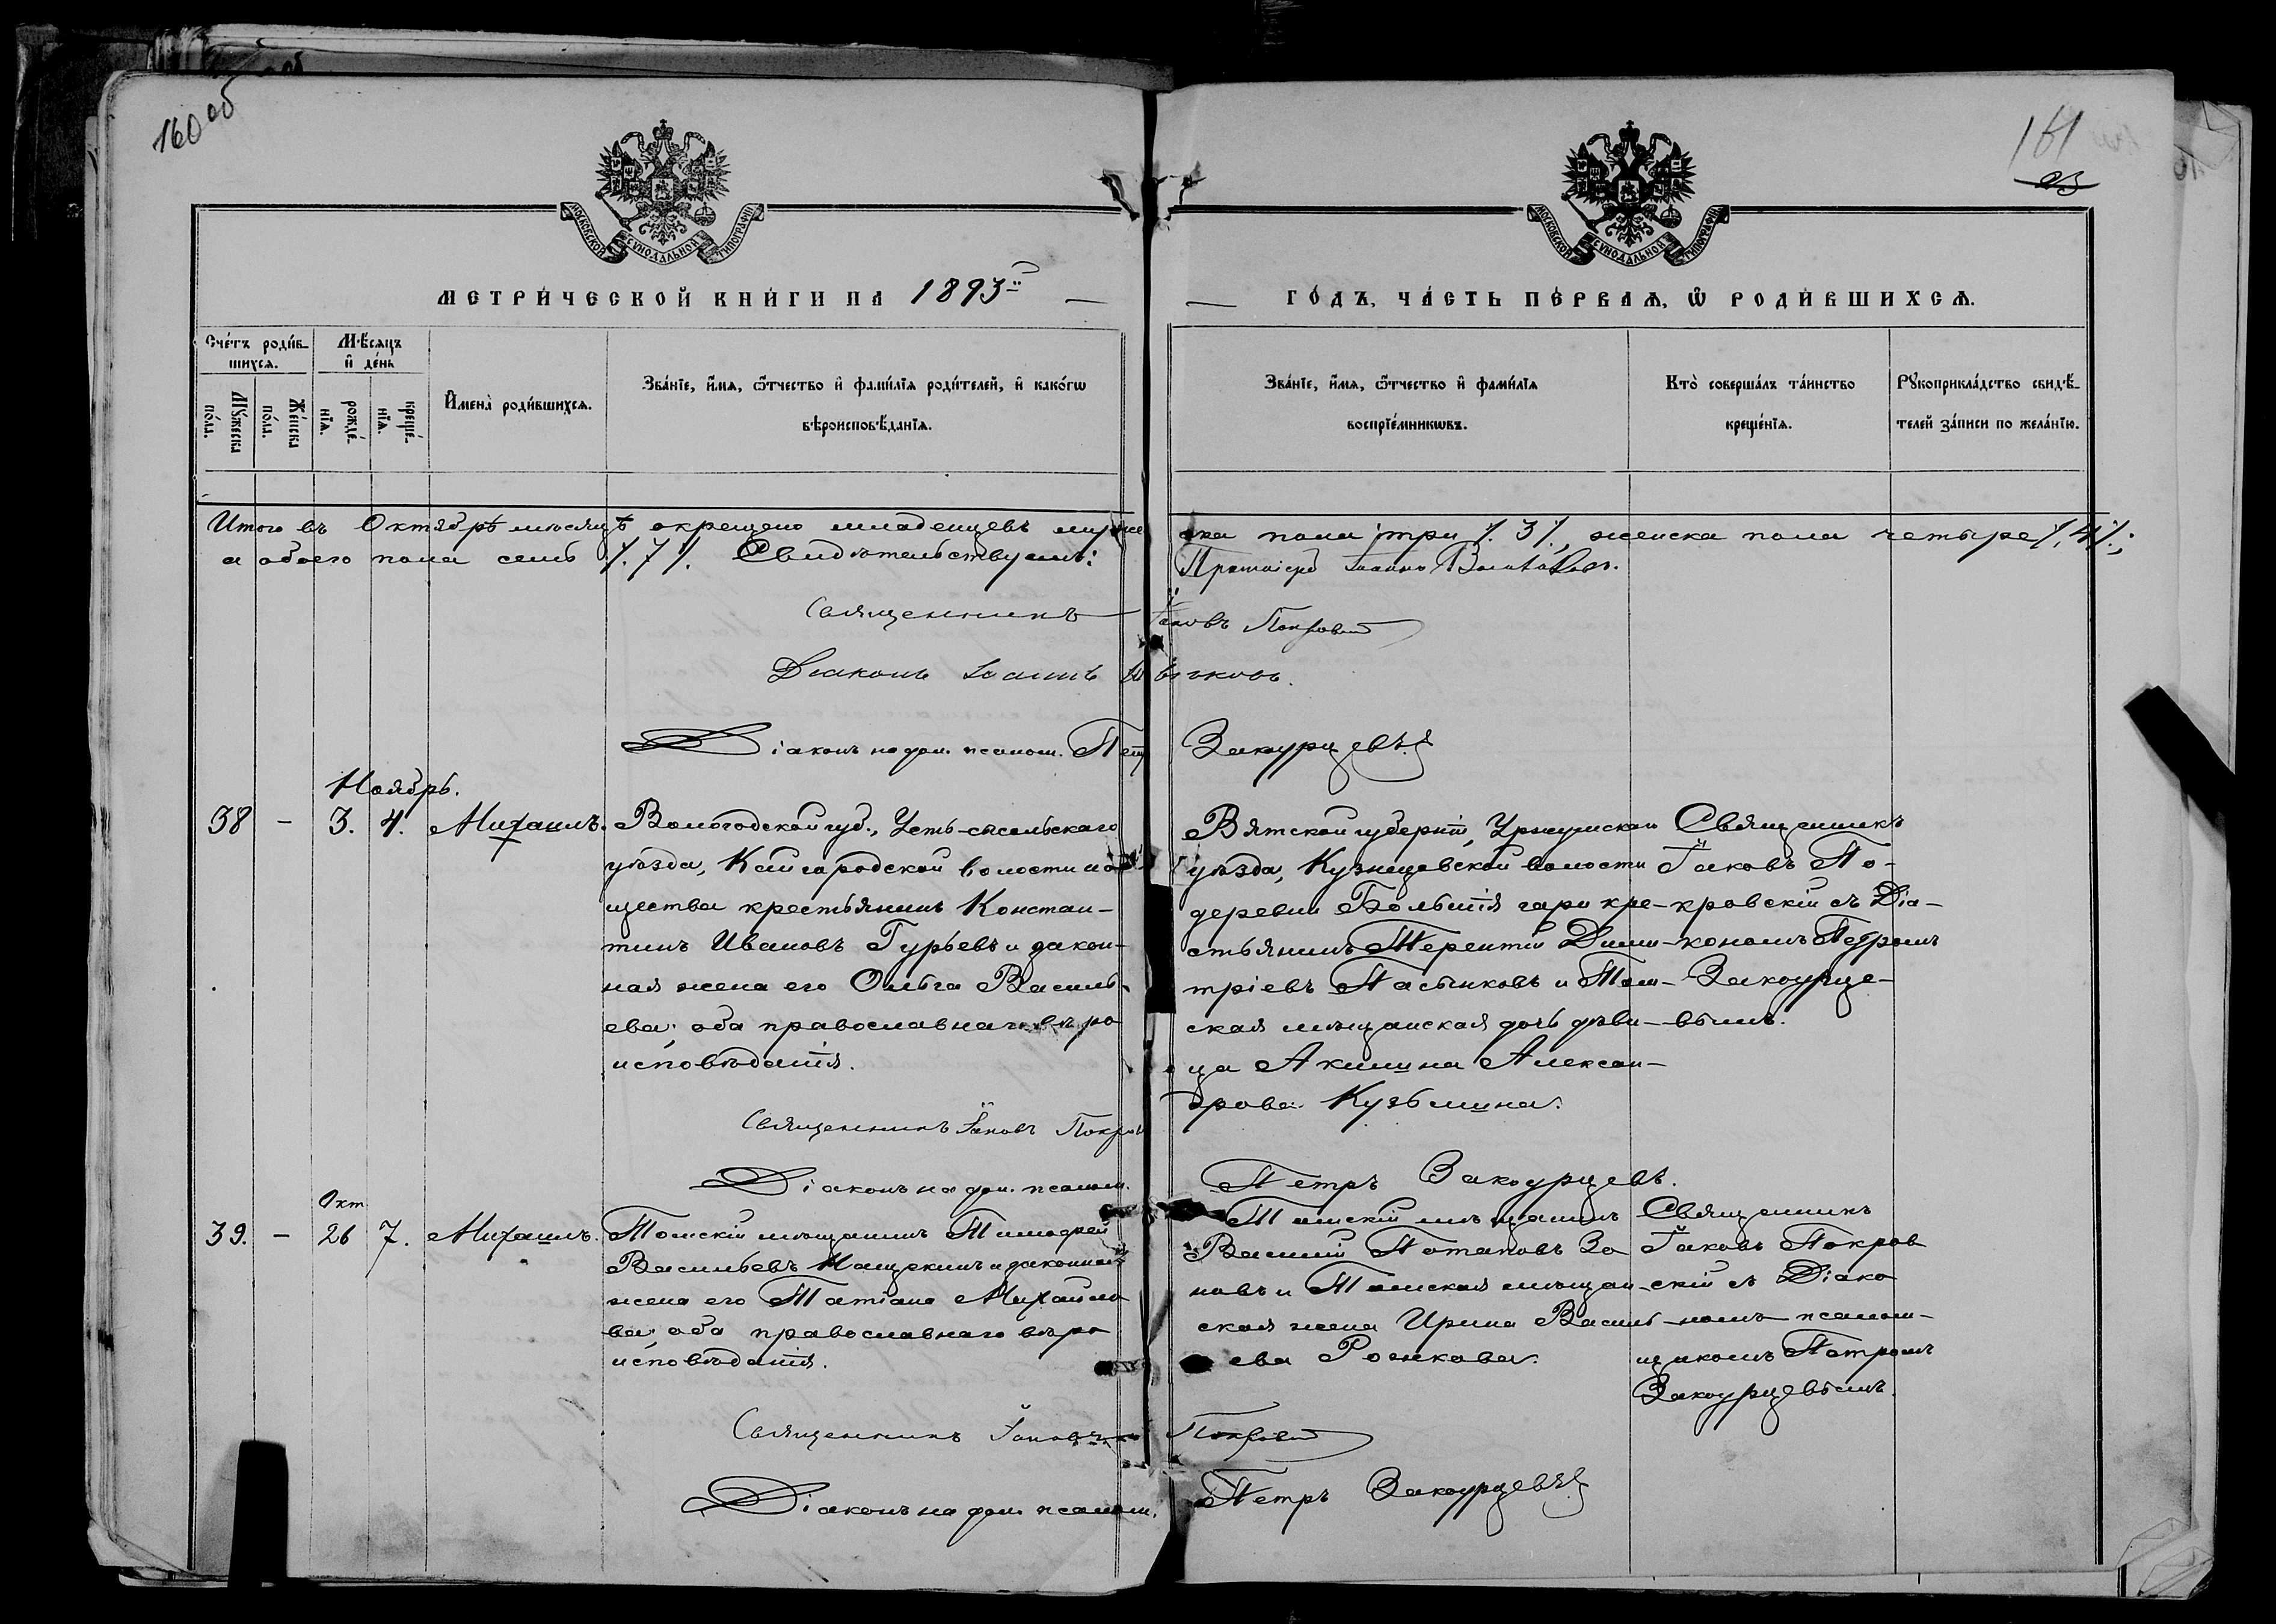 160 об
161
23
МОСКОВСКОЙ СѴНОДАЛЬНОЙ ТИПОГРАФІИ
МОСКОВСКОЙ СѴНОДАЛЬНОЙ ТИПОГРАФІИ
МЕТРИ́ЧЕСКОЙ КНИ́ГИ НА 1893й
ГО́ДЪ, ЧА́СТЬ ПЕ́РВАѦ, Ѽ РОДИ́ВШИХСѦ.
Сче́тъ роди́в-
шихсѧ.
Мѣ́сѧцъ
и҆ де́нь
Мꙋ́жеска
по́ла.
Же́нска
по́ла.
рожде́-
нїѧ.
креще́-
нїѧ.
И҆мена̀ роди́вшихсѧ.
Зва́нїе, и҆́мѧ, ѻ҆́тчество и҆ фами́лїѧ роди́телей, и҆ како́гѡ
вѣроисповѣ́данїѧ.
Зва́нїе, и҆́мѧ, ѻ҆́тчество и҆ фами́лїѧ
воспрїе́мникѡвъ.
Кто̀ соверша́лъ та́инство
креще́нїѧ.
Рꙋкоприкла́дство свидѣ́-
телей за́писи по жела́нїю.
Итого въ Октябрѣ мѣсяцѣ окрещено младенцевъ мужеска пола три /.3/., женска пола четыре /.4/.;
а обоего пола семь /.7/. Свидѣтельствуемъ:
Протоіерей Іоаннъ
Священникъ Іаковъ Покровскій
Діаконъ Іоаннъ
Діаконъ на дол. псалом. Петръ Закоурцевъ
Ноябрь.
38 - 3. 4. Михаилъ.
Вологодской губ., Усть-сысольскаго
уѣзда, Кайгородской волости и об
щества крестьянинъ Констан-
тинъ Ивановъ Гурьевъ и закон-
ная жена его Ольга Василь-
ева; оба православнаго вѣро
исповѣданія.
Вятской губерніи, Уржумскаго
уѣзда, Кузнецовской волости
деревни Большія гари кре-
стьянинъ Терентій Дими-
тріевъ Пасынковъ и Том-
ская мѣщанская дочь дѣви-
ца Акилина Алексан-
дрова Кузьмина.
Священникъ
Іаковъ По-
кровскій съ Діа-
кономъ Петромъ
Закоурце-
вымъ.
Священникъ Іаковъ Покров
Діаконъ на дол. псалом. Петръ Закоурцевъ.
Окт
39. - 26 7. Михаилъ.
Томскій мѣщанинъ Тимофей
Васильевъ Нащекинъ и законная
жена его Татіана Михайло
ва; оба православнаго вѣро
исповѣданія.
Томскій мѣщанинъ
Василій Потаповъ Зо
новъ и Томская мѣщан-
ская жена Ирина Василь-
ева Рожкова.
Священникъ
Іаковъ Покров
скій съ Діако
номъ псалом-
щикомъ Петромъ
Закоурцевымъ.
Священникъ Іаковъ Покровскій
Діаконъ на дол. псалом. Петръ Закоурцевъ